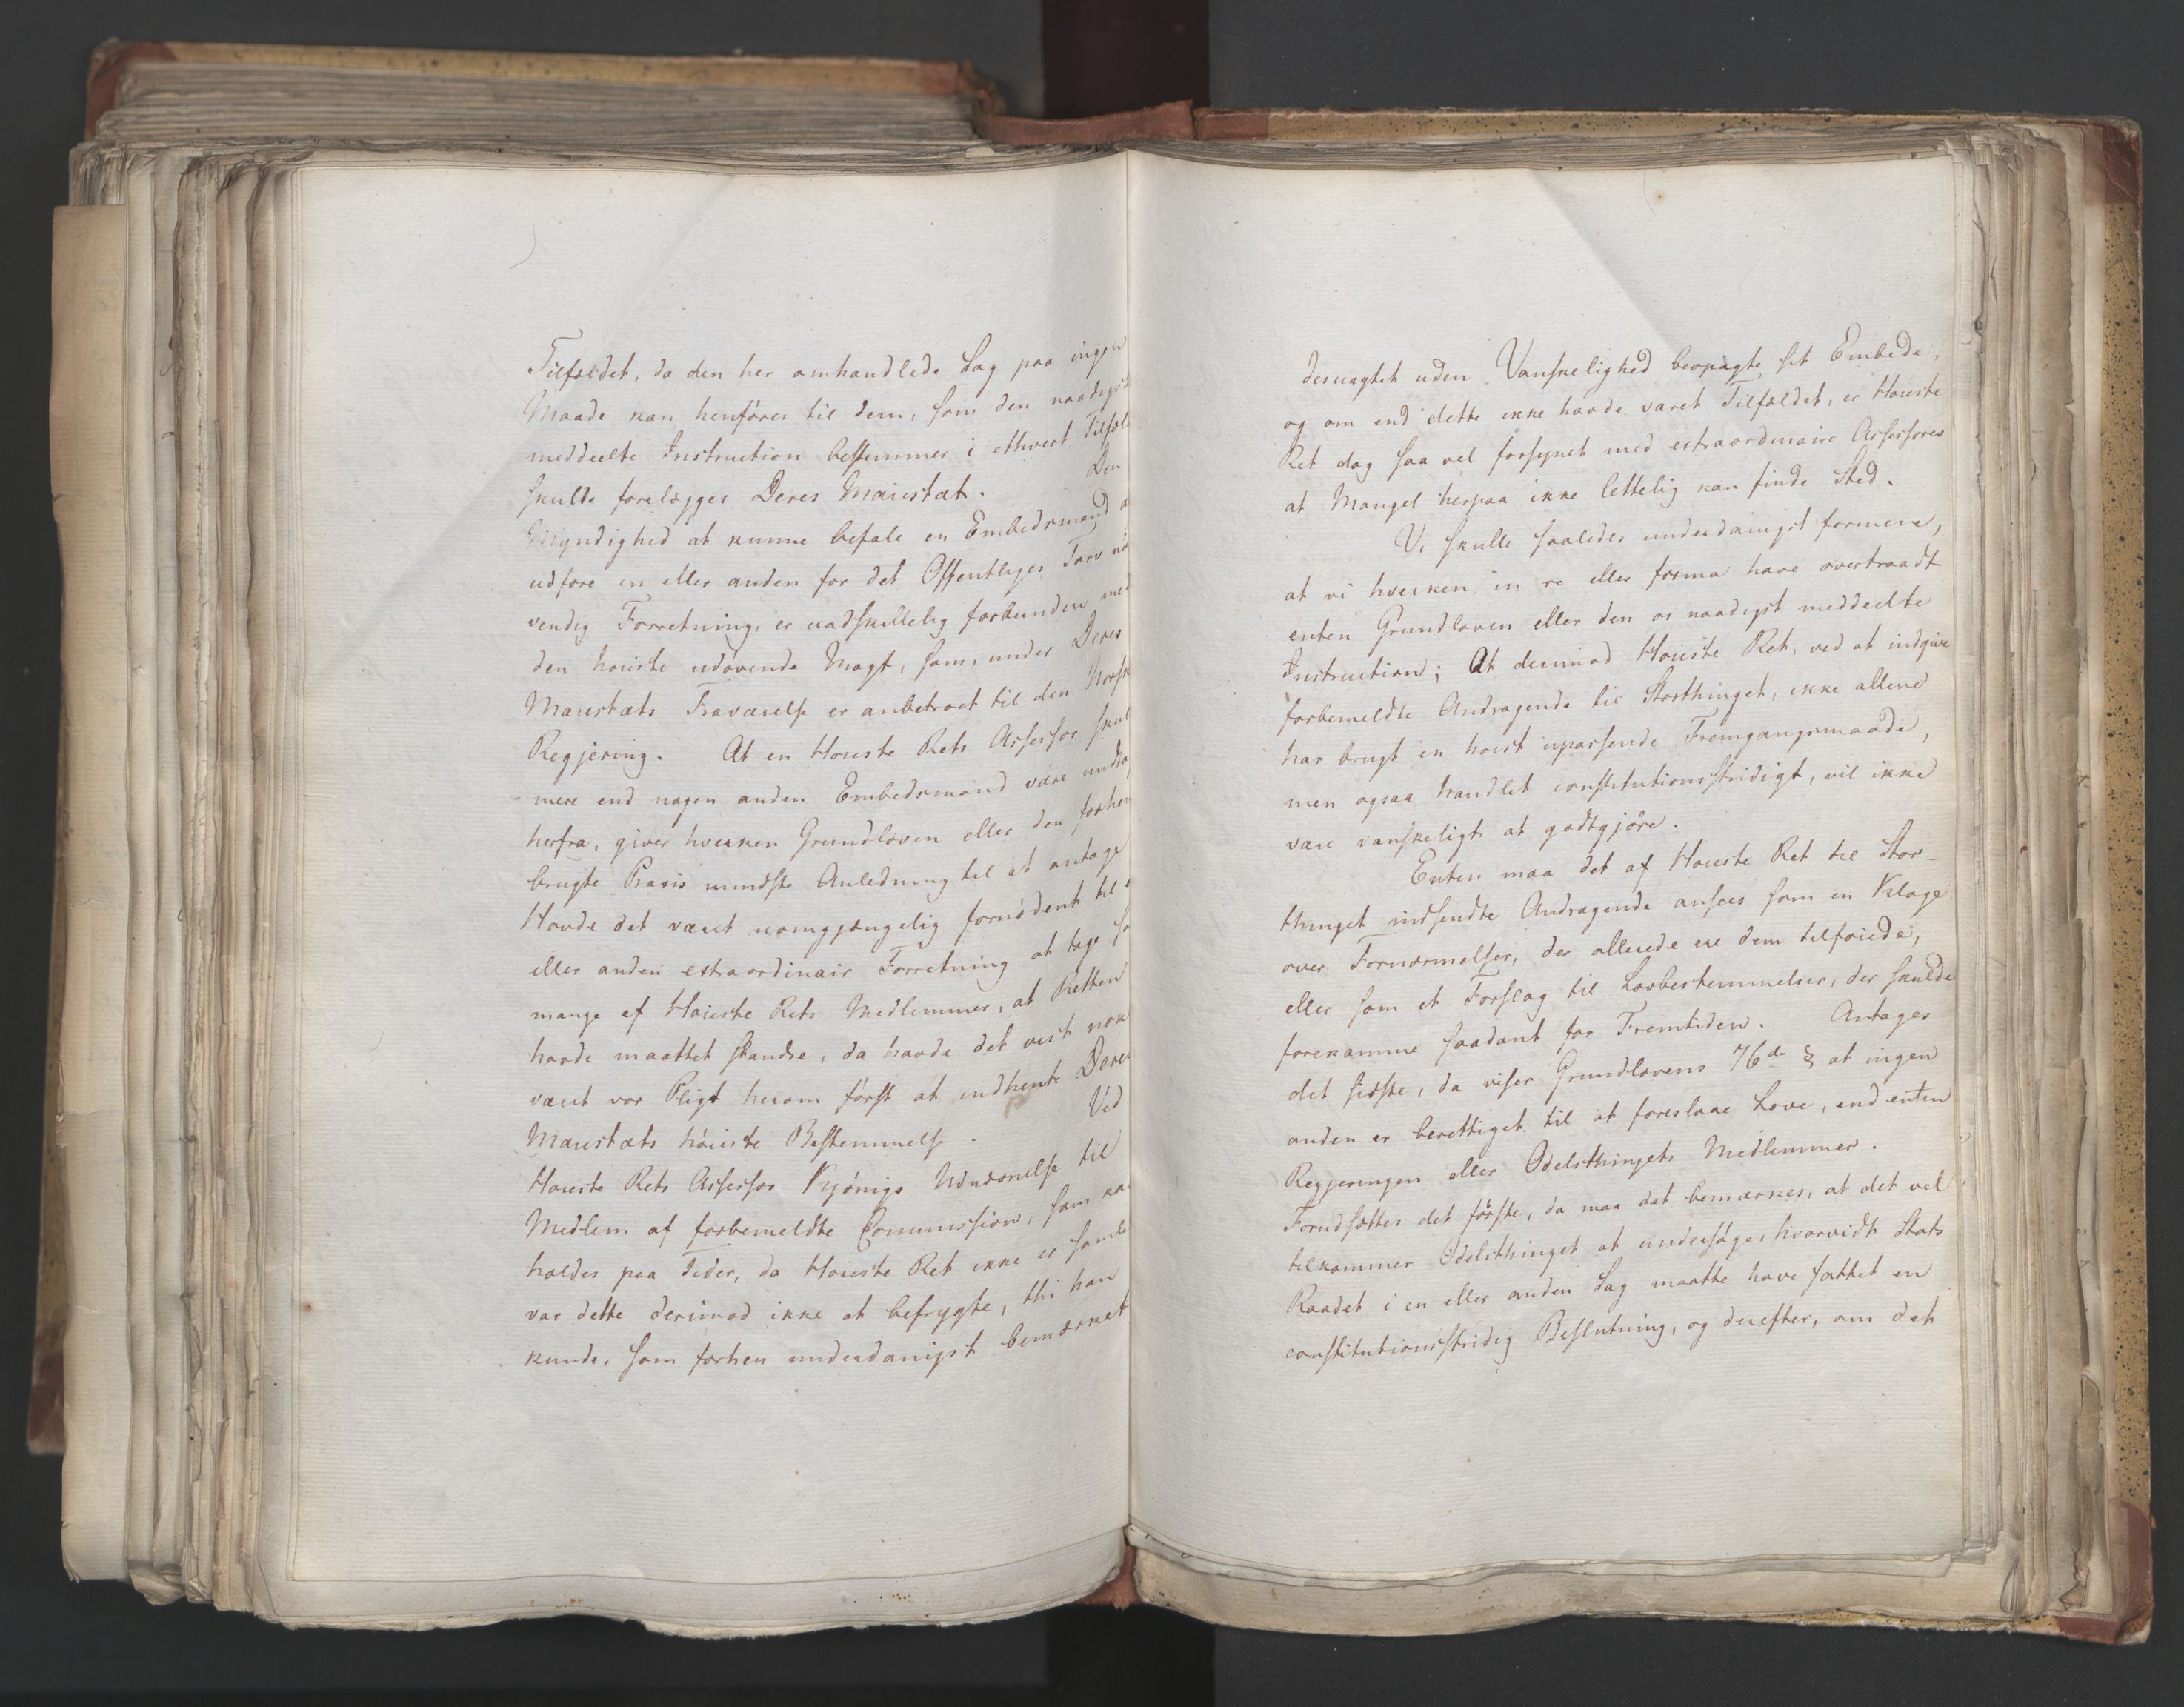 Tilfældet, da den her omhandlede Sag paa ingen
Maade kan henføres til dem, som den naadigst
meddeelte Instruction bestemmer i ethvert Tilfæld
skulde forelægges Deres Majestæt. Den
Myndighed at kunne befale en Embedsmand a
udføre en eller anden for det Offentliges Tarv nø
vendig Forretning, er uadskillelig forbunden med
den høieste udøvende Magt, som, under Deres
Majestæts Fraværelse er anbetroet til den Norsk
Regjering. At en Høieste Rets Assessor skul
mere end nogen anden Embedsmand være undta
herfra, giver hverken Grundloven eller den forhen
brugte Praxis mindste Anledning til at antage
Havde det været uomgjængelig fornødent til e
eller anden extraordinair Forretning at tage sa
mange af Høieste Rets Medlemmer, at Retten
havde maattet standse, da havde det vist nok
været vor Pligt herom først at indhente Deres
Majestæts høieste Bestemmelse. Ved
Høieste Rets Assessor Kyønigs Udnævnelse til
Medlem af forbemeldte Commission, som ka
holdes paa Tider, da Høieste Ret ikke er samle
var dette derimod ikke at befrygte, thi han
kunde, som forhen underdanigst bemærket
desuagtet uden Vanskelighed beopagte sit Embede,
og om end dette ikke havde været Tilfældet, er Høieste
Ret dog saa vel forsynet med extraordinaire Assessores
at Mangel herpaa ikke lettelig kan finde Sted.
Vi skulle saaledes underdanigst formene,
at vi hverken in re eller forma have overtraadt
enten Grundloven eller den os naadigst meddeelte
Instruction; At derimod Høieste Ret, ved at indgive
forbemeldte Andragende til Storthinget, ikke allene
har brugt en høist upassende Fremgangsmaade,
men ogsaa handlet constitutionsstridigt, vil ikke
være vanskeligt at godtgjøre.
Enten maa det af Høieste Ret til Stor-
thinget indsendte Andragende ansees som en Klage
over Fornærmelser, der allerede ere dem tilføiede,
eller som et Forslag til Lovbestemmelser, der skulde
forekomme saadant for Fremtiden. Antages
det sidste, da viser Grundlovens 76de § at ingen
anden er berettiget til at foreslaae Love, end enten
Regjeringen eller Odelsthingets Medlemmer.
Forudsættes det første, da maa det bemærkes, at det vel
tilkommer Odelsthinget at undersøge, hvorvidt Stats
Raadet i en eller anden Sag maatte have fattet en
constitutionsstridig Beslutning, og derefter, om det